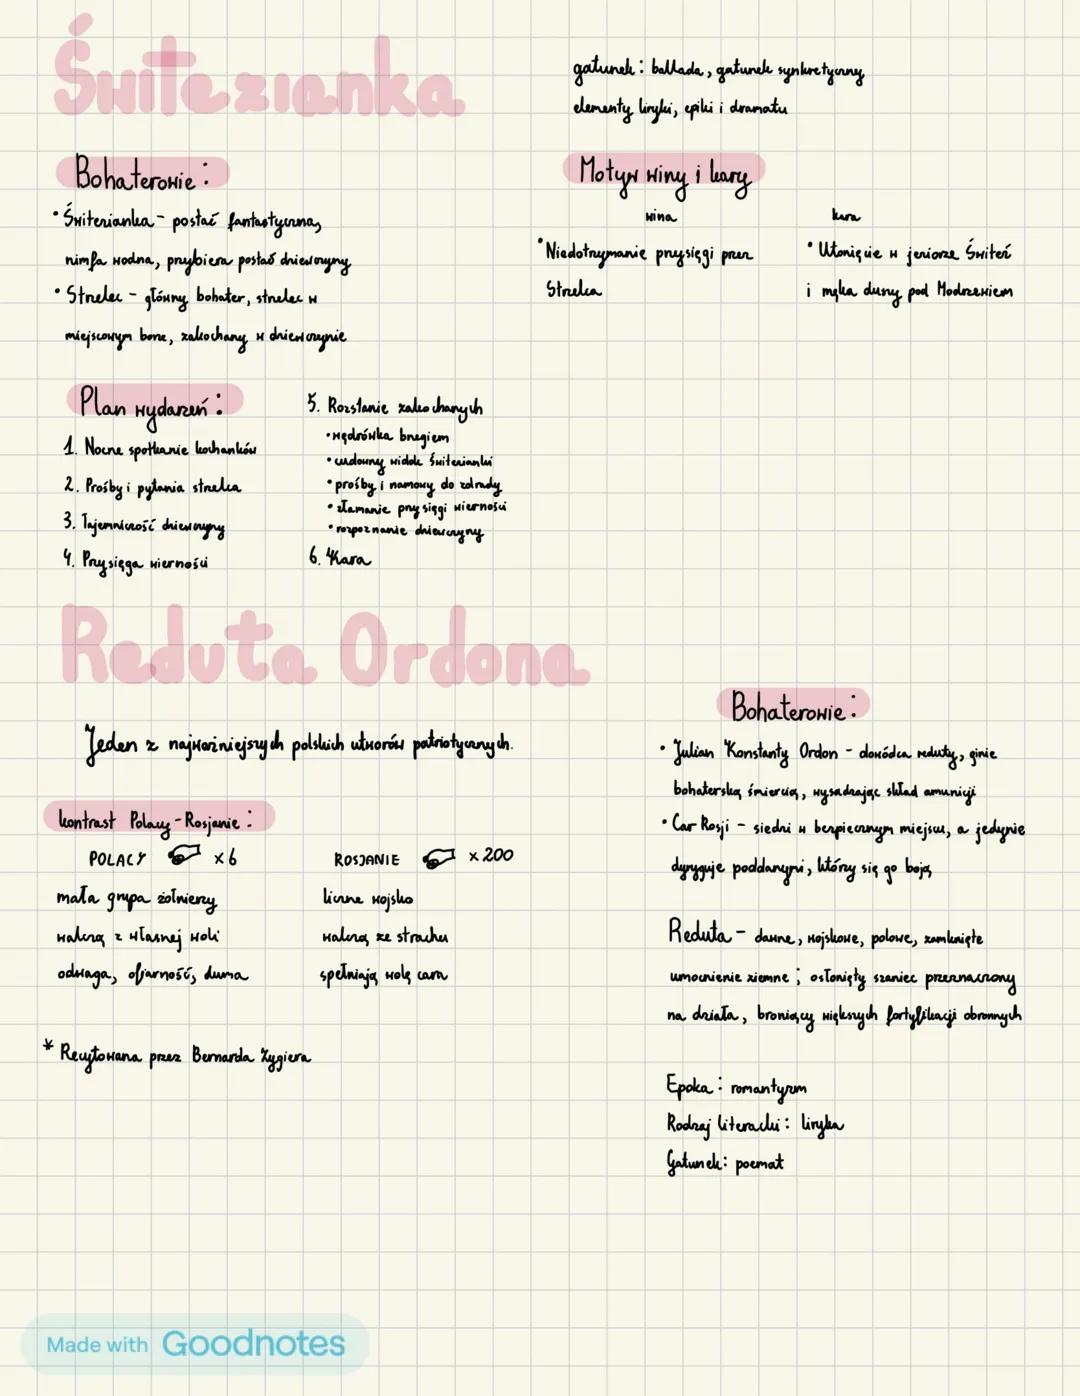 Świtezianka
gatunek: ballada, gatunek synkretyczny
elementy liryki, epiki i dramatu
Bohaterowie:
• Świtezianka - postać fantastyczna,
nimfa wodna, przybiera postać dziewczyny
• Strzelec - główny bohater, strzelec w
miejscowym borze, zakochany w dziewczynie
Motyw winy i kary
wina
• Niedotrzymanie przysięgi przez
Strzelca
kara
• Utonięcie w jeziorze Świteź
i męka duszy pod Modrzewiem
Plan wydarzeń:
1. Nocne spotkanie kochanków
2. Prośby i pytania strzelca
3. Tajemniczość dziewczyny
4. Przysięga wierności
5. Rozstanie zakochanych
• wędrówka brzegiem
• cudowny widok Świtezianki
• prośby i namowy do zdrady
• złamanie przysięgi wierności
• rozpoznanie dziewczyny
6. Kara
Reduta Ordona
Jeden z najważniejszych polskich utworów patriotycznych.
kontrast Polacy - Rosjanie:
POLACY x6
mała grupa żołnierzy
walczą z własnej woli
odwaga, ofiarność, duma
ROSJANIE x200
liczne wojsko
walczą ze strachu
spełniają wolę cara
* Recytowana przez Bernarda Zygiera
Bohaterowie:
• Julian Konstanty Ordon - dowódca reduty, ginie
bohaterską śmiercią, wysadzając skład amunicji
• Car Rosji - siedzi w bezpiecznym miejscu, a jedynie
dyryguje poddanymi, którzy się go boją
Reduta - dawne, wojskowe, polowe, zamknięte
umocnienie ziemne; osłonięty szaniec przeznaczony
na działa, broniący większych fortyfikacji obronnych
Epoka: romantyzm
Rodzaj literacki: liryka
Gatunek: poemat
Made with Goodnotes